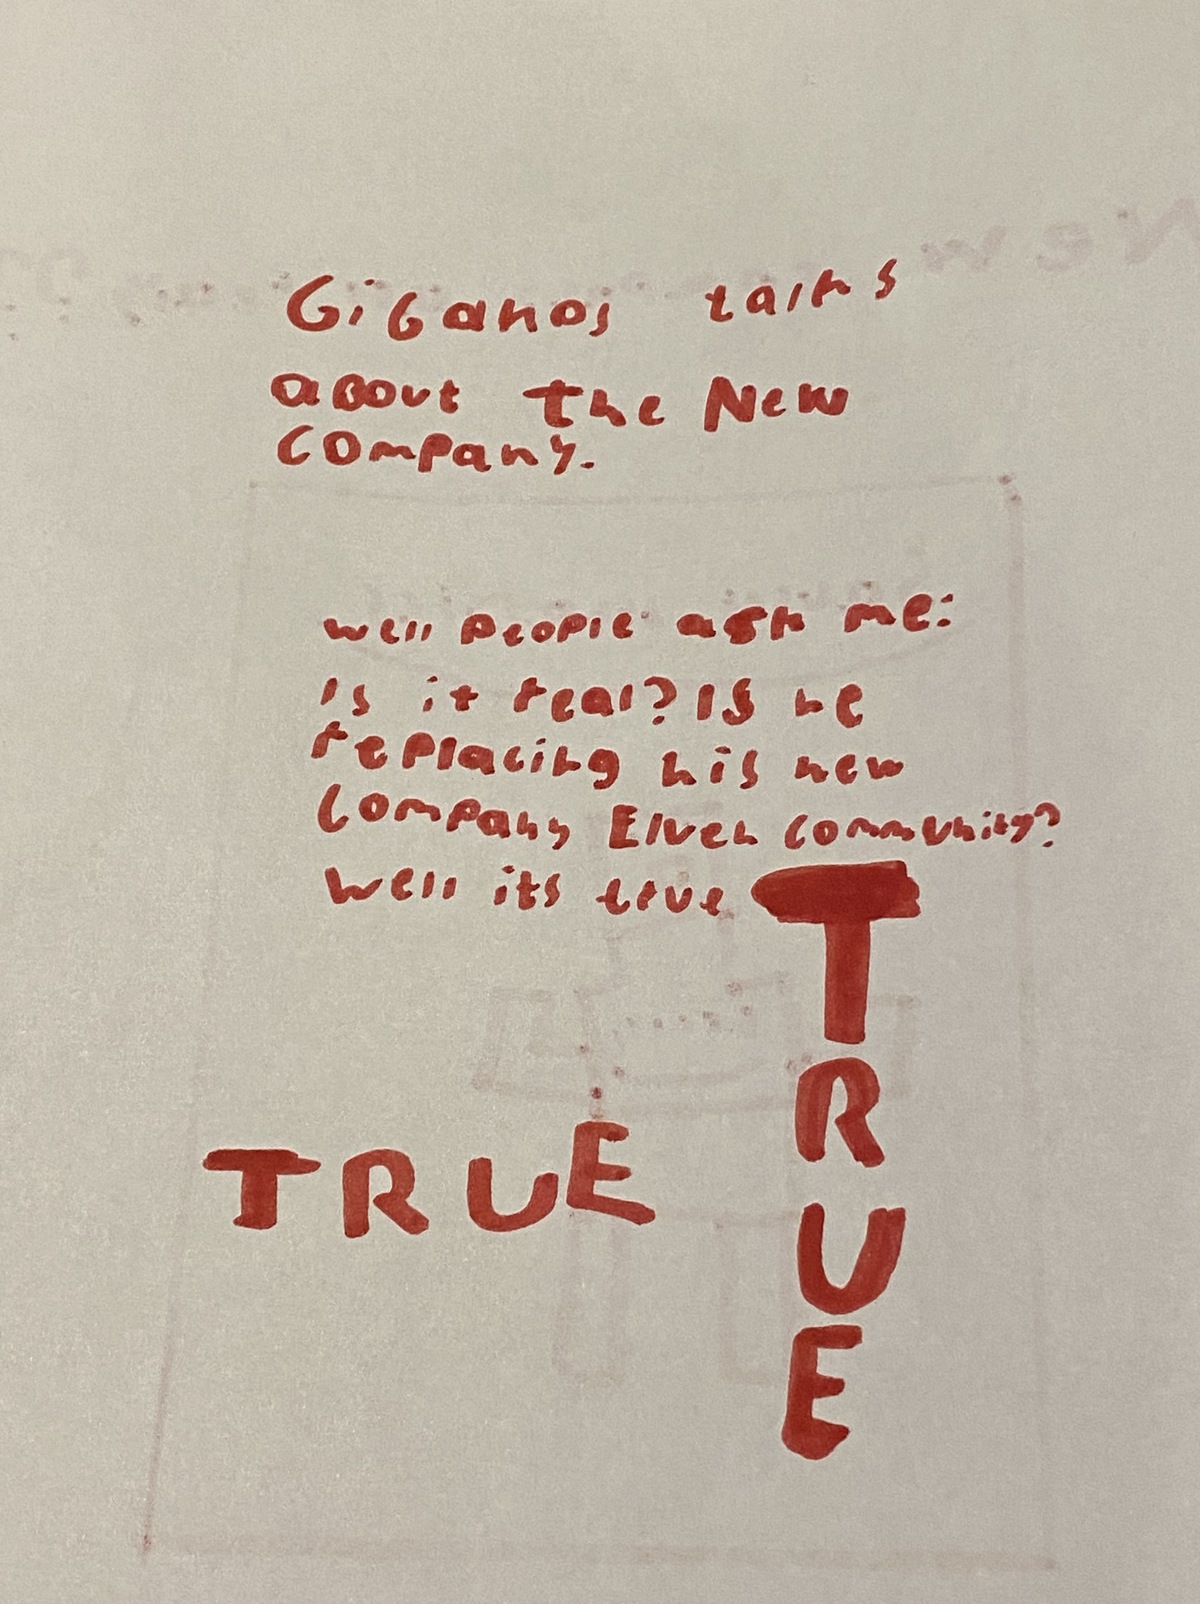 Giganos talks
about the New
company.
well people ask me:
Is it real? Is he
replacing his new
company Elven community?
Well its true TRUE
TRUE